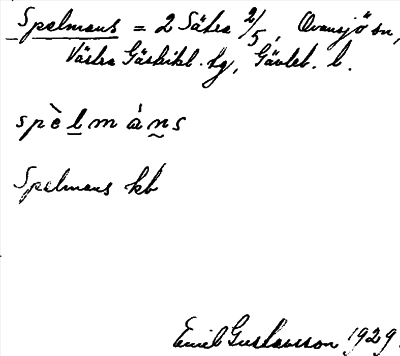 Spelmans = 2 Sätra 2/5, Ovansjö sn,
Västra Gästrikl. tg, Gävleb. l.
spè̀l̲mán̰s
Spelmans kb
Emil Gustavsson 1929.